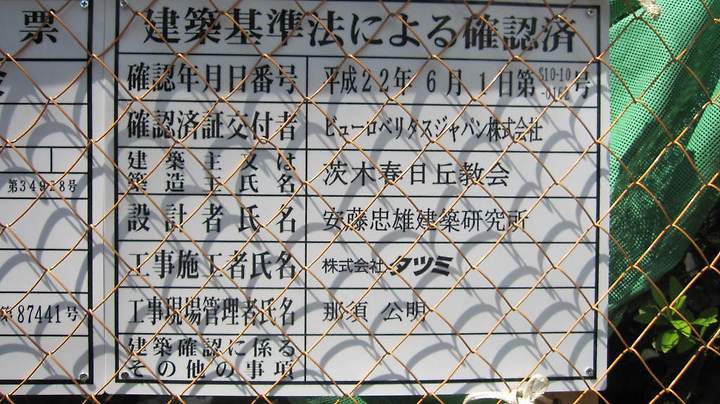 票
第34938号
第87441号
建築基準法による確認済
確認年月日番号 平成22年 6月 1日第 S10-10 -0162 号
確認済証交付者 ビューロベリタスジャパン株式会社
建築主又は
築造主氏名 茨木春日丘教会
設計者氏名 安藤忠雄建築研究所
工事施工者氏名 株式会社タツミ
工事現場管理者氏名 那須 公明
建築確認に係る
その他の事項